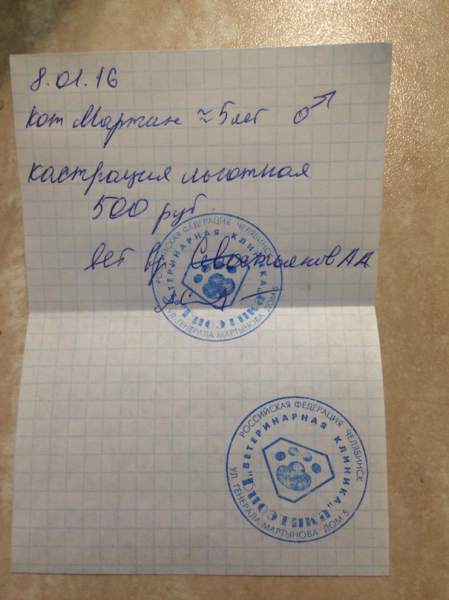 8.01.16
Кот Мартин ≈ 5 лет ♂
кастрация льготная
500 руб.
вет вр. Севостьянов А А
РОССИЙСКАЯ ФЕДЕРАЦИЯ ЧЕЛЯБИНСК
"ВЕТЕРИНАРНАЯ КЛИНИКА"
УЛ. ГЕНЕРАЛА МАРТЫНОВА ДОМ 5
РОССИЙСКАЯ ФЕДЕРАЦИЯ ЧЕЛЯБИНСК
"ВЕТЕРИНАРНАЯ КЛИНИКА"
УЛ. ГЕНЕРАЛА МАРТЫНОВА ДОМ 5